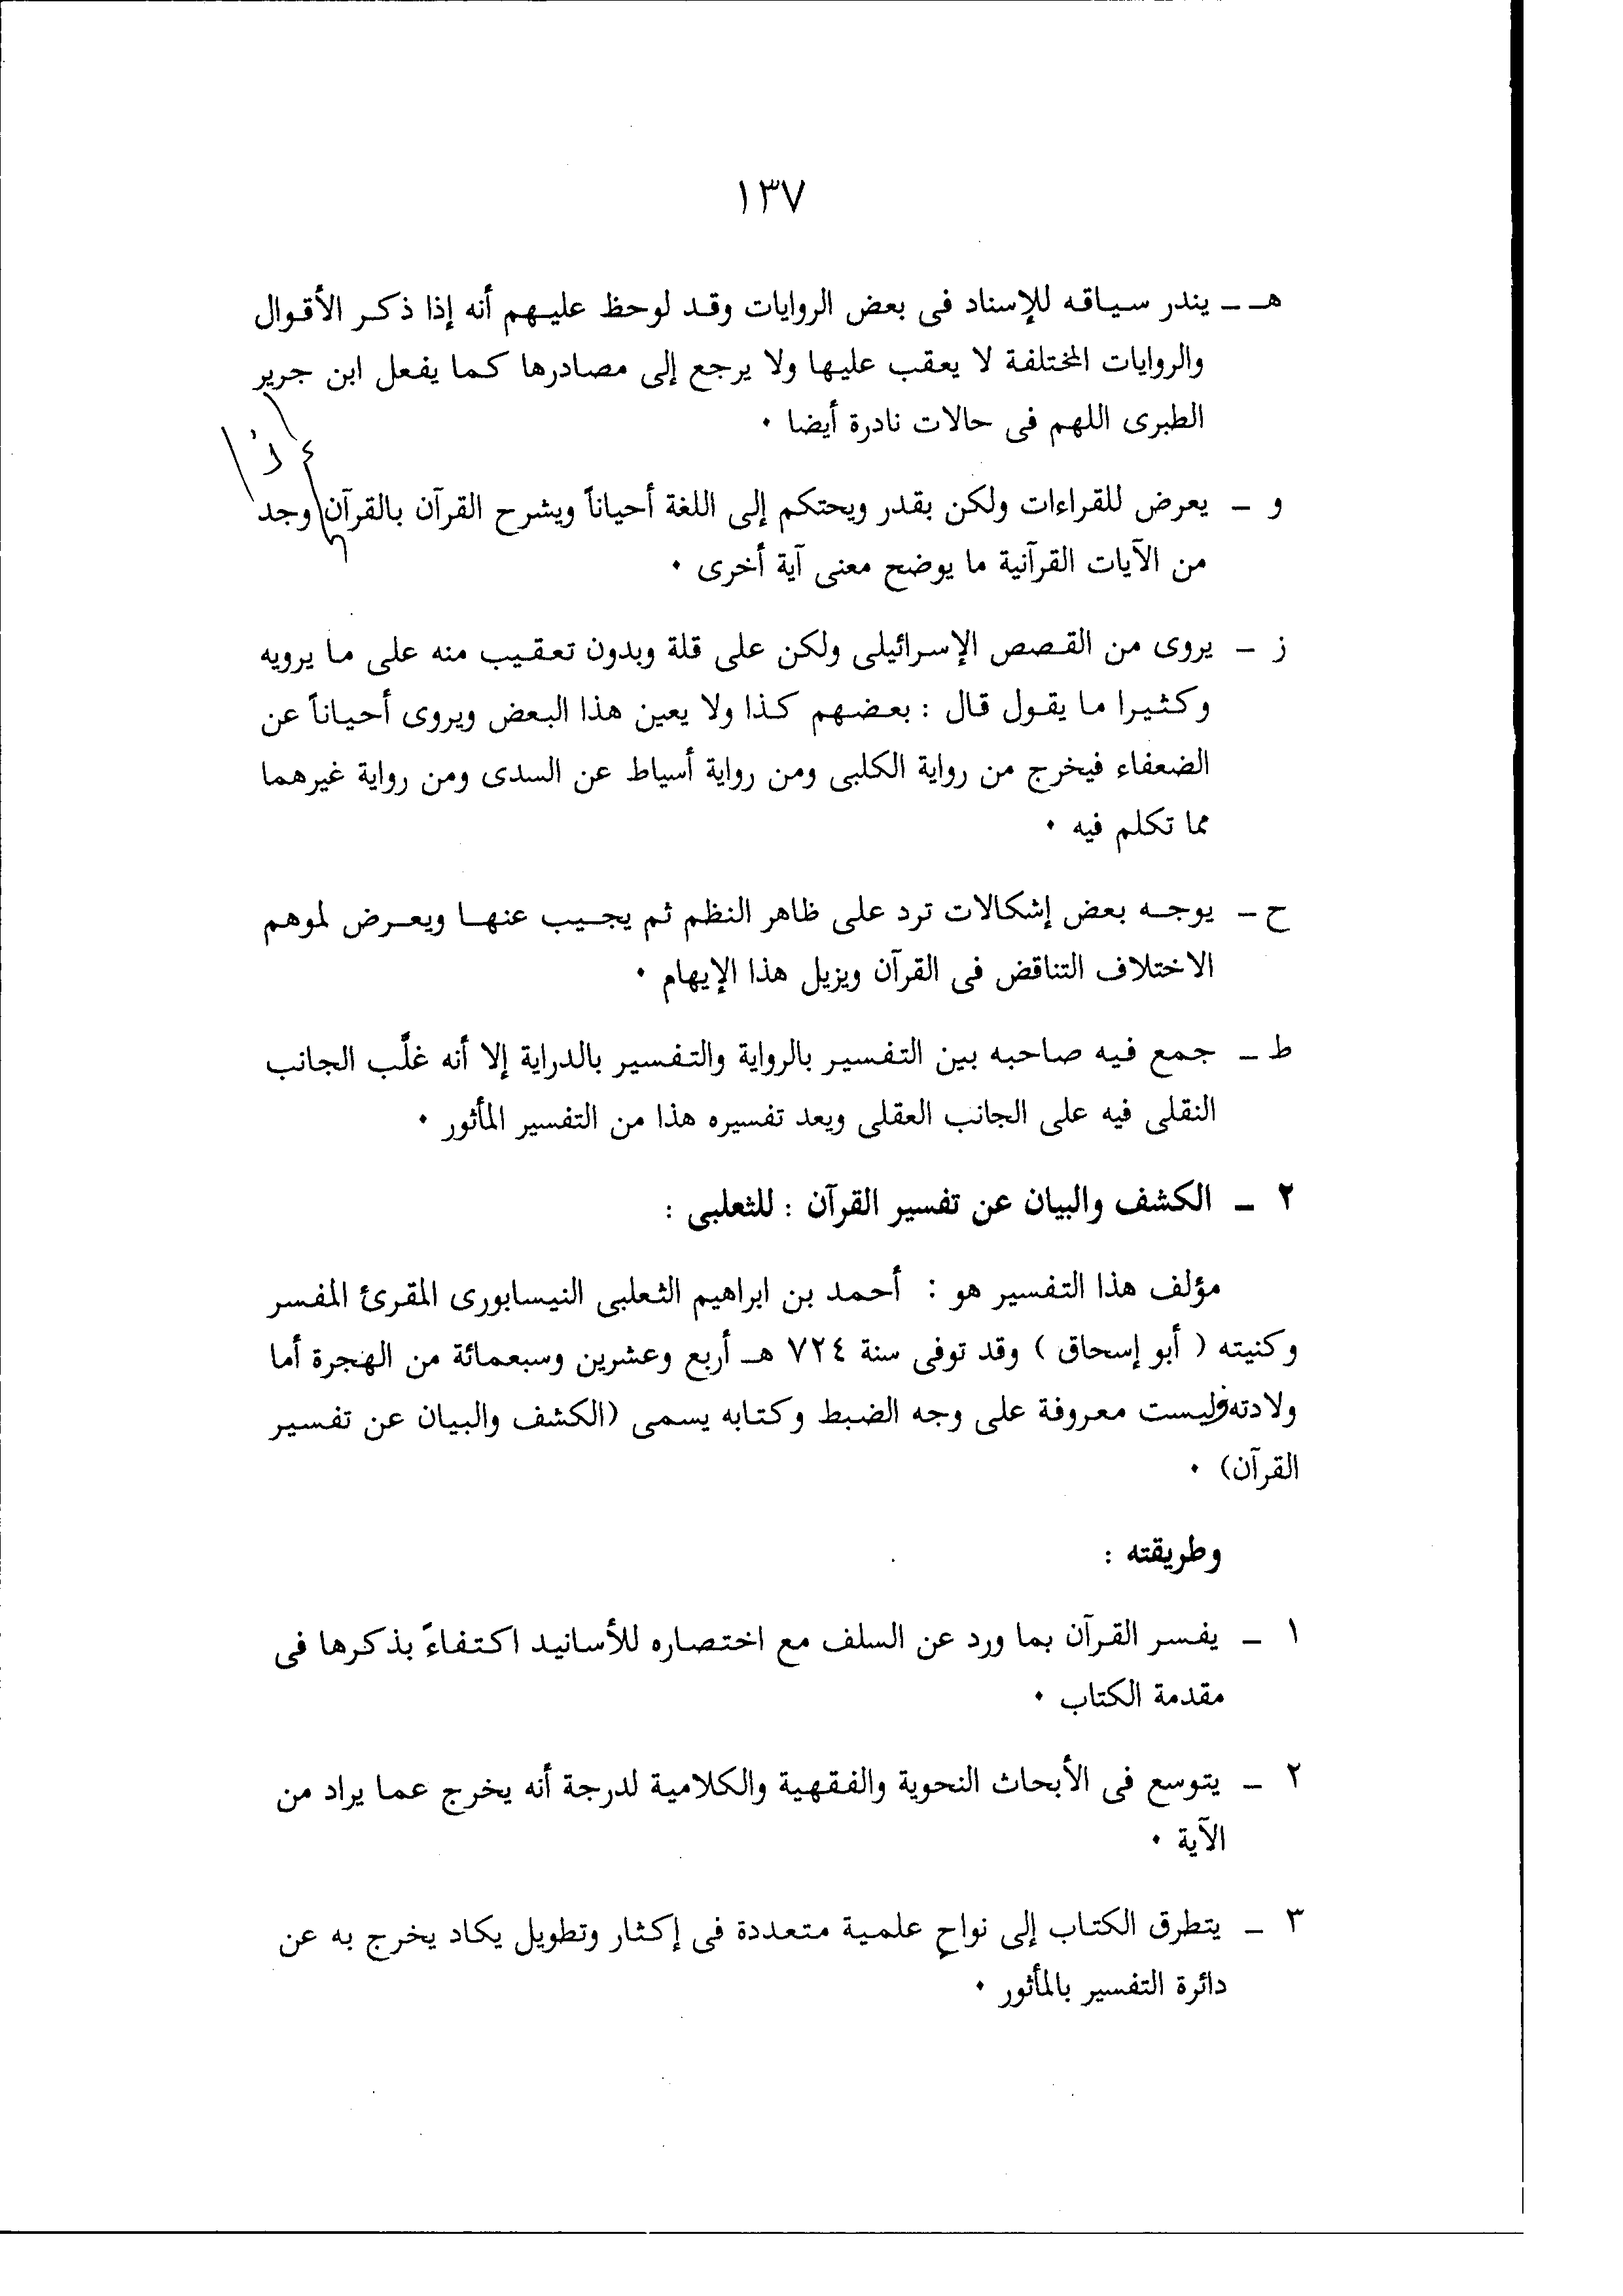 ١٣٧
هـ ـ يندر سياقه للإسناد فى بعض الروايات وقد لوحظ عليهم أنه إذا ذكر الأقوال
والروايات المختلفة لا يعقب عليها ولا يرجع إلى مصادرها كما يفعل ابن جرير
الطبرى اللهم فى حالات نادرة أيضا ٠
و ـ يعرض للقراءات ولكن بقدر ويحتكم إلى اللغة أحياناً ويشرح القرآن بالقرآن وجد
من الآيات القرآنية ما يوضح معنى آية أخرى ٠
ز ـ يروى من القصص الإسرائيلى ولكن على قلة وبدون تعقيب منه على ما يرويه
وكثيرا ما يقول قال : بعضهم كذا ولا يعين هذا البعض ويروى أحياناً عن
الضعفاء فيخرج من رواية الكلبى ومن رواية أسباط عن السدى ومن رواية غيرهما
مما تكلم فيه ٠
ح ـ يوجه بعض إشكالات ترد على ظاهر النظم ثم يجيب عنها ويعرض لموهم
الاختلاف التناقض فى القرآن ويزيل هذا الإيهام ٠
ط ـ جمع فيه صاحبه بين التفسير بالرواية والتفسير بالدراية إلا أنه غلَّب الجانب
النقلى فيه على الجانب العقلى ويعد تفسيره هذا من التفسير المأثور ٠
٢ ـ الكشف والبيان عن تفسير القرآن : للثعلبى :
مؤلف هذا التفسير هو : أحمد بن ابراهيم الثعلبى النيسابورى المقرئ المفسر
وكنيته ( أبو إسحاق ) وقد توفى سنة ٧٢٤ هـ أربع وعشرين وسبعمائة من الهجرة أما
ولادته فليست معروفة على وجه الضبط وكتابه يسمى (الكشف والبيان عن تفسير
القرآن) ٠
وطريقته :
١ ـ يفسر القرآن بما ورد عن السلف مع اختصاره للأسانيد اكتفاءً بذكرها فى
مقدمة الكتاب ٠
٢ ـ يتوسع فى الأبحاث النحوية والفقهية والكلامية لدرجة أنه يخرج عما يراد من
الآية ٠
٣ ـ يتطرق الكتاب إلى نواحٍ علمية متعددة فى إكثار وتطويل يكاد يخرج به عن
دائرة التفسير بالمأثور ٠